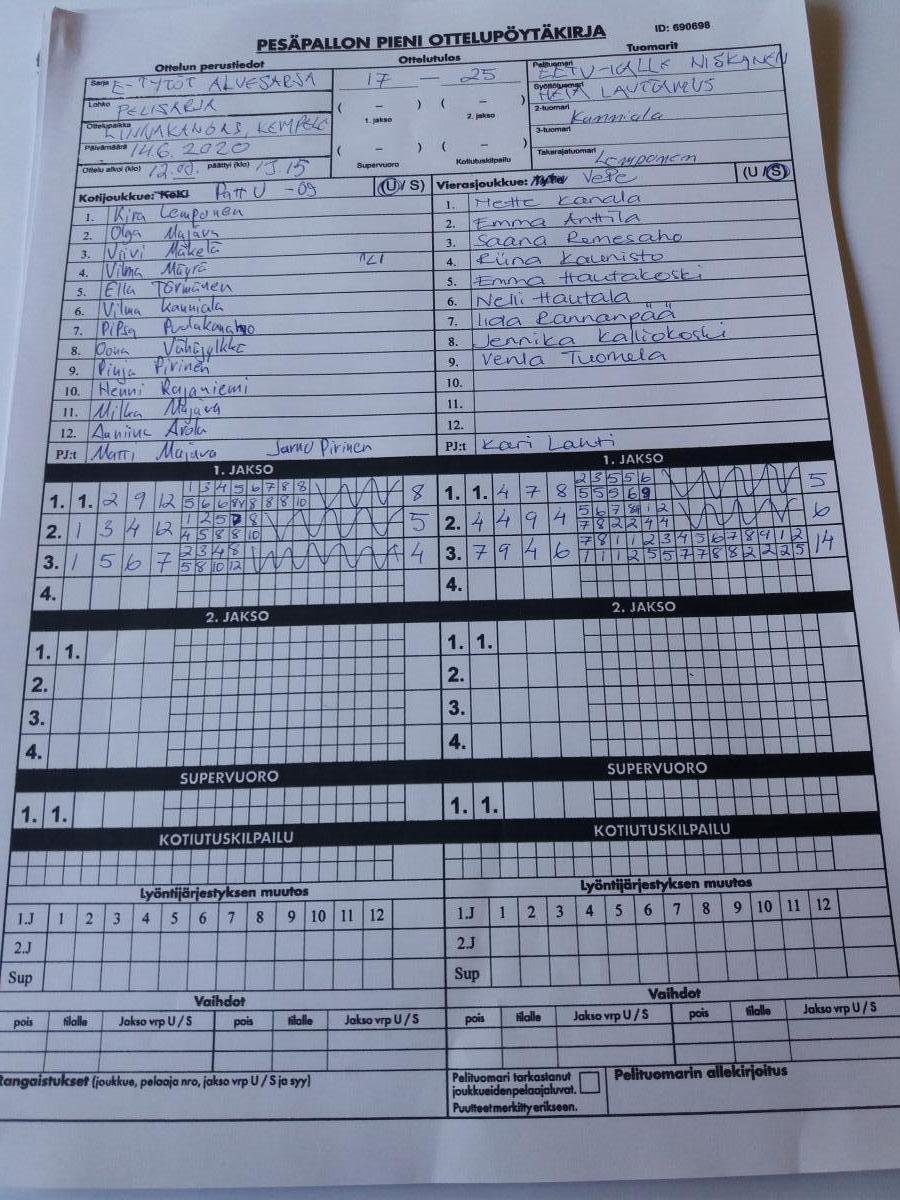 PESÄPALLON PIENI OTTELUPÖYTÄKIRJA
ID: 690698
Ottelun perustiedot
Ottelutulos
Tuomarit
Sarja E-TYTÖT ALUESARJA
17 — 25
Pelituomari EETU-KALLE NISKANEN
Lohko PELISARJA
( – ) ( – )
1. jakso 2. jakso
Syöttötuomari LAUTAMUS
Ottelupaikka LINNAKANGAS, KEMPELE
2-tuomari Kanniala
Päivämäärä 14.6.2020
( – ) ( – )
3-tuomari
Ottelu alkoi (klo) 12.00. päättyi (klo) 13.15
Supervuoro Kotiutuskilpailu
Takarajatuomari Lemponen
Kotijoukkue: PattU -09 (U/S)
Vierasjoukkue: VePe (U/S)
1. Kira Lemponen
2. Olga Majava
3. Viivi Mäkelä
4. Vilma Mäyrä
5. Ella Törmänen
6. Vilma Kanniala
7. Pipsa
8. Oona Vähäjylkkä
9. Pinja Pirinen
10. Henni Rajaniemi
11. Milka Majava
12. Anniina Arola
PJ:t Matti Majava Jarno Pirinen
1. Mette Kanala
2. Emma Anttila
3. Saana Remesaho
4. Riina Kaunisto
5. Emma Hautakoski
6. Nelli Hautala
7. Iida Rannanpää
8. Jennika Kalliokoski
9. Venla Tuomela
10.
11.
12.
PJ:t Kari Lahti
1. JAKSO
1. 1. 2 9 12 1 3 4 5 6 7 8 8 8
2. 1 3 4 12 5
3. 1 5 6 7 2 3 4 8 4
5 8 10 12
4.
1. JAKSO
1. 1. 4 7 8 2 3 5 5 6 5
5 5 5 6 9
2. 4 4 9 4 6
7 8 2 2 4 4
3. 7 9 4 6 7 8 1 1 2 3 4 5 6 7 8 9 1 2 14
1 1 1 2 5 5 7 7 8 8 2 2 2 5
4.
2. JAKSO
1. 1.
2.
3.
4.
2. JAKSO
1. 1.
2.
3.
4.
SUPERVUORO
1. 1.
SUPERVUORO
1. 1.
KOTIUTUSKILPAILU
KOTIUTUSKILPAILU
Lyöntijärjestyksen muutos
1.J 1 2 3 4 5 6 7 8 9 10 11 12
2.J
Sup
Lyöntijärjestyksen muutos
1.J 1 2 3 4 5 6 7 8 9 10 11 12
2.J
Sup
Vaihdot
pois tilalle Jakso vrp U / S pois tilalle Jakso vrp U / S
Vaihdot
pois tilalle Jakso vrp U / S pois tilalle Jakso vrp U / S
Rangaistukset (joukkue, pelaaja nro, jakso vrp U / S ja syy)
Pelituomari tarkastanut
joukkueidenpelaajaluvat.
Puutteet merkitty erikseen.
Pelituomarin allekirjoitus